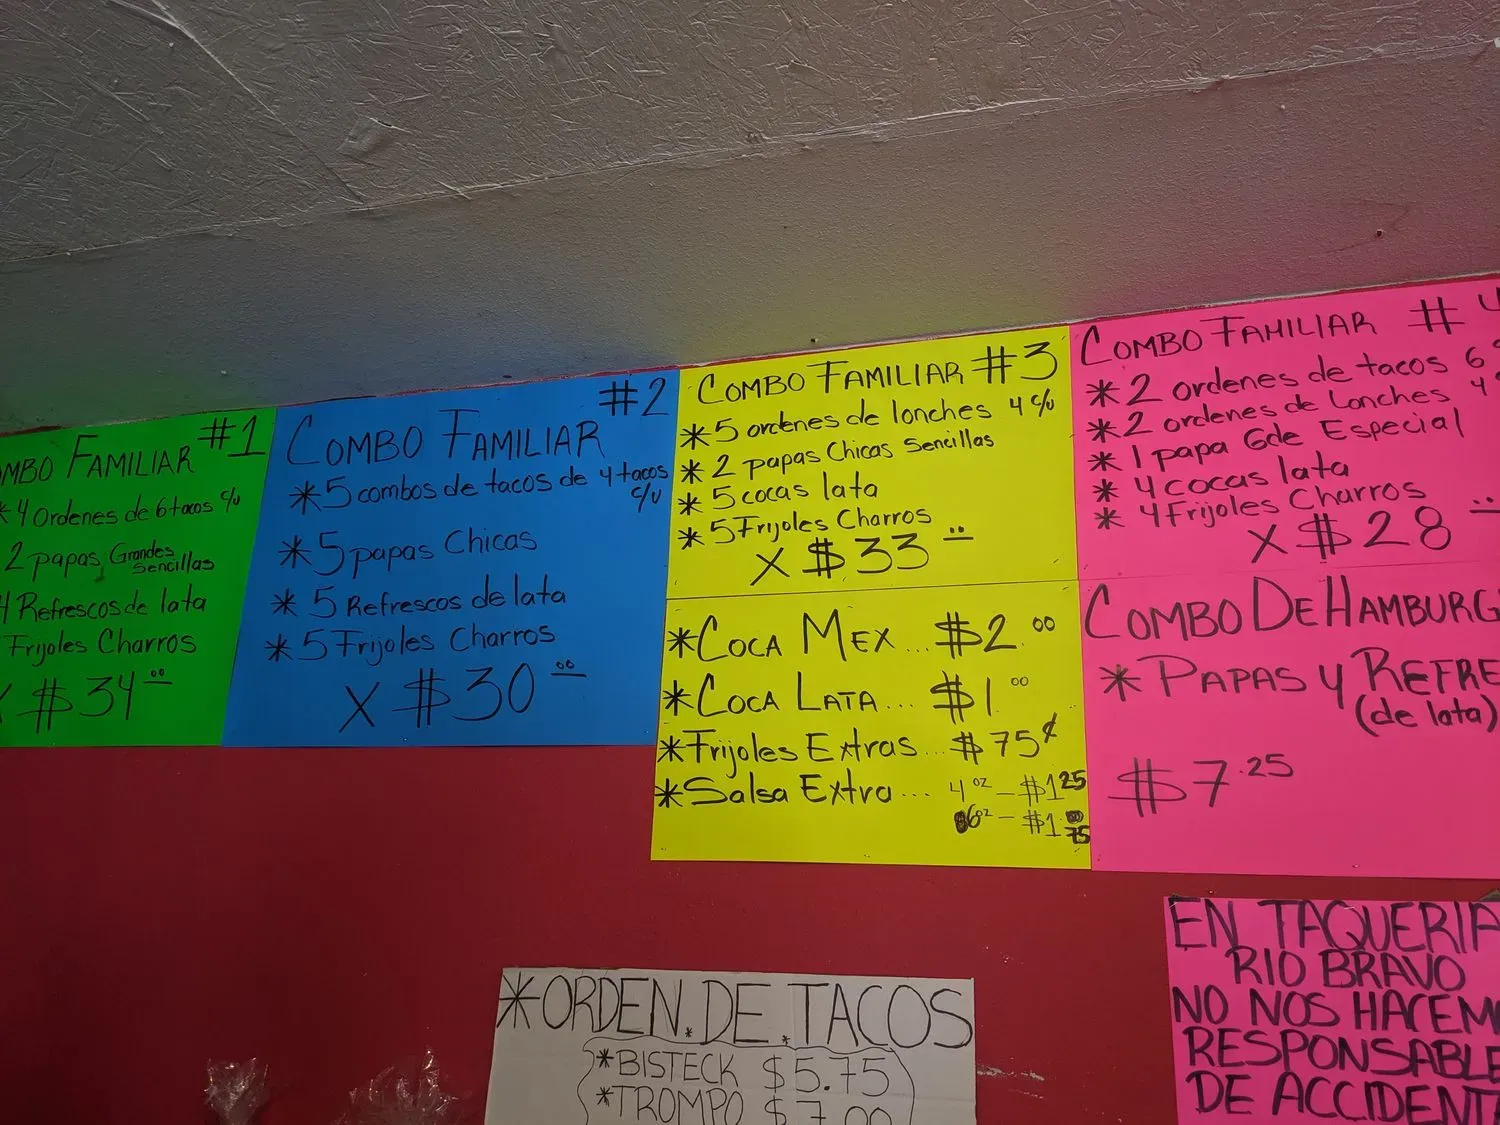 #1
MBO FAMILIAR
* 4 Ordenes de 6 tacos c/u
2 papas Grandes Sencillas
4 Refrescos de lata
Frijoles Charros
X $34.00
#2
COMBO FAMILIAR
* 5 combos de tacos de 4 tacos
c/u
* 5 papas Chicas
* 5 Refrescos de lata
* 5 Frijoles Charros
X $30.00
COMBO FAMILIAR #3
* 5 ordenes de lonches 4 c/u
* 2 papas Chicas Sencillas
* 5 cocas lata
* 5 Frijoles Charros
X $33
* COCA MEX... $2.00
* COCA LATA... $1.00
* Frijoles Extras... $75¢
* Salsa Extra... 4oz - $1.25
6oz - $1.75
COMBO FAMILIAR # 4
* 2 ordenes de tacos 6
* 2 ordenes de Lonches 4
* 1 papa Gde Especial
* 4 cocas lata
* 4 Frijoles Charros
X $28
COMBO DE HAMBURG
* PAPAS Y REFRE
(de lata)
$7.25
EN TAQUERIA
RIO BRAVO
NO NOS HACEM
RESPONSABLE
DE ACCIDENT
*ORDEN.DE.TACOS
*BISTECK $5.75
*TROMPO $7.00